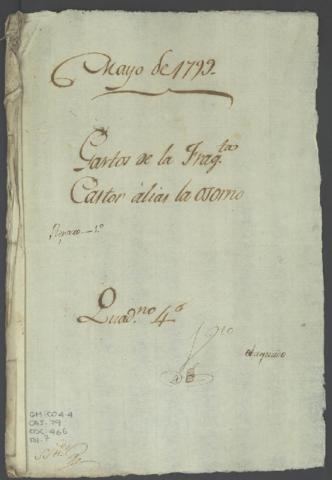 Mayo de 1799.
Gastos de la Frag.ta
Castor álias la osorno
Reparo — 1.º
Quad.no 4º
GM-CO 4-4
CAJ. 79
DOC. 466